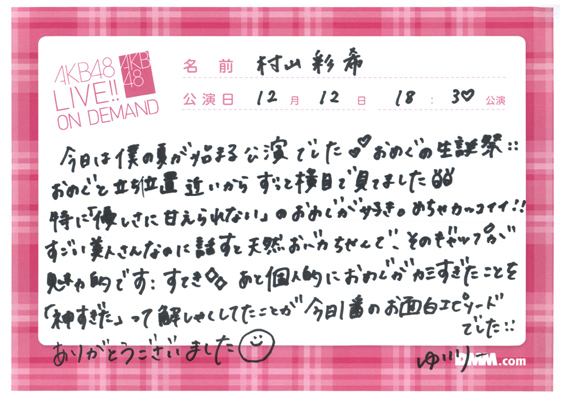 AKB48
LIVE!!
ON DEMAND
AKB
48
名前 村山彩希
公演日 12月12日 18:30公演
今日は僕の夏が始まる公演でした♡♡ おめぐの生誕祭::
おめぐと立ち位置近いからずっと横目で見てました
特に「優しさに甘えられない」のおめぐが好き。めちゃカッコイイ!!
すごい美人さんなのに話すと天然おバカちゃんで、そのギャップが
魅力的です: すてき◇◇ あと個人的におめぐがカミすぎたことを
「神すぎた」って解しゃくしてたことが今日1番のお面白エピソード
でした::
ありがとうございました☺
ゆいりー
DMM.com